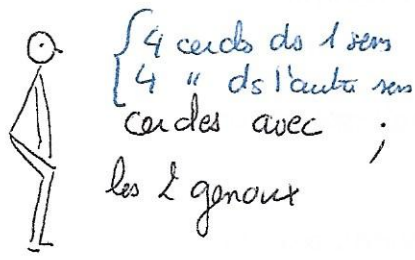 4 cercles ds 1 sens
4 " ds l'autre sens
cercles avec ;
les 2 genoux